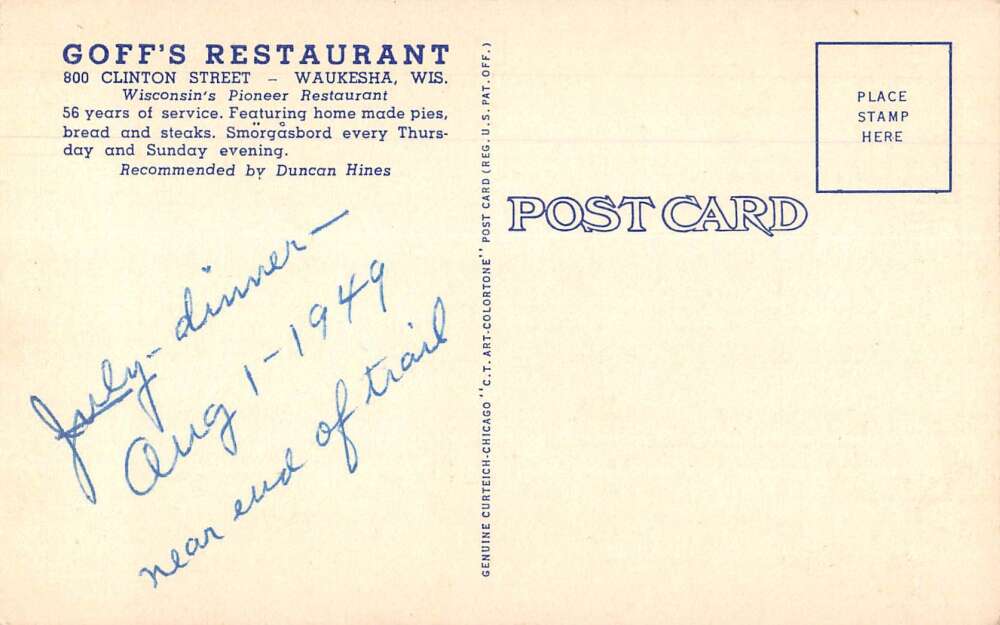 GOFF'S RESTAURANT
800 CLINTON STREET – WAUKESHA, WIS.
Wisconsin's Pioneer Restaurant
56 years of service. Featuring home made pies,
bread and steaks. Smörgåsbord every Thurs-
day and Sunday evening.
Recommended by Duncan Hines
July - dinner -
Aug 1 - 1949
near end of trail
GENUINE CURTEICH-CHICAGO "C.T. ART-COLORTONE" POST CARD (REG. U.S. PAT. OFF.)
POST CARD
PLACE
STAMP
HERE